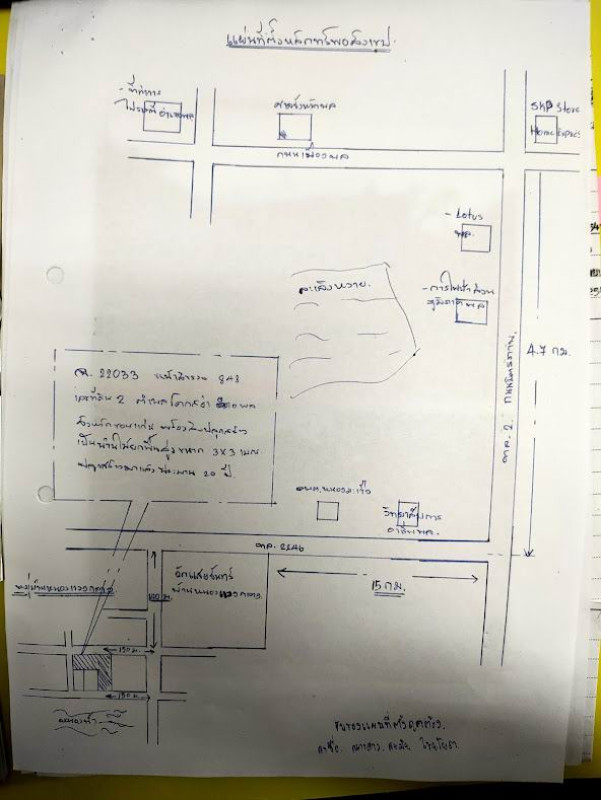 แผนที่ตั้งหลักทรัพย์ของรูป
- ที่ทำการ
ไปรษณีย์อำเภอพล
ศาลจังหวัดพล
SHP Store
Home Expres
ถนนเมืองพล
- Lotus
พล.
ละเลิงหวาย.
- การไฟฟ้าส่วน
ภูมิภาค พล
4.7 กม.
ทล. 2. ถนนมิตรภาพ.
ฉ. 22033 หน้าสำรวจ 848
เลขที่ดิน 2 ตำบลโคกสง่า อำเภอพล
จังหวัดขอนแก่น พร้อมสิ่งปลูกสร้าง
เป็นบ้านไม้ยกพื้นสูง ขนาด 3x3 เมตร
ปลูกสร้างมาแล้วประมาณ 20 ปี
อบต.หนองมะเขือ
วิทยาลัยการ
อาชีพพล.
ทล. 2246
วัด
บ้านหนองแวง
15 กม.
หมู่บ้านหนองแวง
100 ม.
150 ม.
150 ม.
ขอรับรองแผนที่ตั้งถูกต้อง.
ลงชื่อ. นางสาว